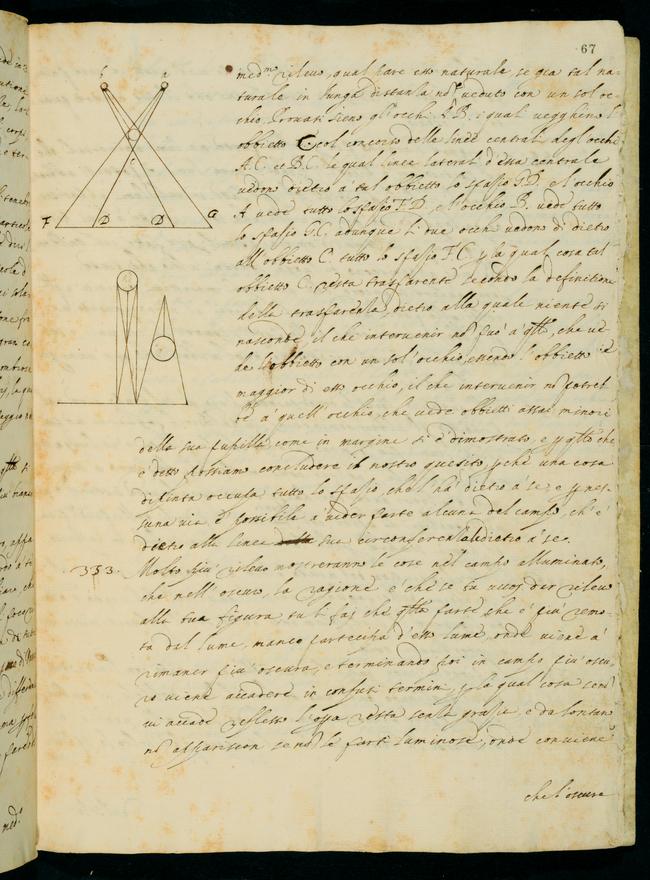 67
med.º rilevo, qual pare esso naturale, se già tal na-
turale in lunga distanza nõ è veduto con un sol oc-
chio. Provasi sieno gl'occhi A.B. i quali vegghino l'
obbietto C. col concorso delle linee centrali degl'occhi
A.C. et B.C. le qual linee laterali d'essa centrale
vedono dietro a tal obbietto lo spatio G.D. e l'occhio
A vede tutto lo spatio F.D. e l'occhio B. vede tutto
lo spatio G.C. adunque li due occhi vedono di dietro
all'obbietto C. tutto lo spatio F.C. p la qual cosa tal
obbietto C. resta trasparente secondo la definitione
della trasparenza, dietro alla quale niente si
nasconde, il che intervenir nõ può a' qsto, che ve-
de l'obbietto con un sol'occhio, essendo l'obbietto
maggior di esso occhio, il che intervenir nõ potreb-
be a' quell'occhio, che vede obbietti assai minori
della sua pupilla, come in margine si è dimostrato, e p qsto che
è detto possiamo concludere il nostro quesito, pchè una cosa
dipinta occupa tutto lo spatio, che l'hà dietro a' se, e p nes-
suna via è possibile a' veder parte alcuna del campo, ch'è
dietro alla linea sua circonferentiale dietro a' se.
353. Molto più rilevo mostreranno le cose nel campo alluminato,
che nell'oscuro, la ragione è che se tu vuoi dar rilevo
alla tua figura tu la fai che qlla parte che è più remo-
ta dal lume, manco partecipa d'esso lume, onde viene a'
rimaner più oscura, e terminando poi in campo più oscu-
ro viene accadere in confusi termini, p la qual cosa se nõ
vi accade reflesso l'opa resta senza gratia, e da lontano
nõ appariscon se nõ le parti luminose, onde conviene
che l'oscure
b a
c
F D D G